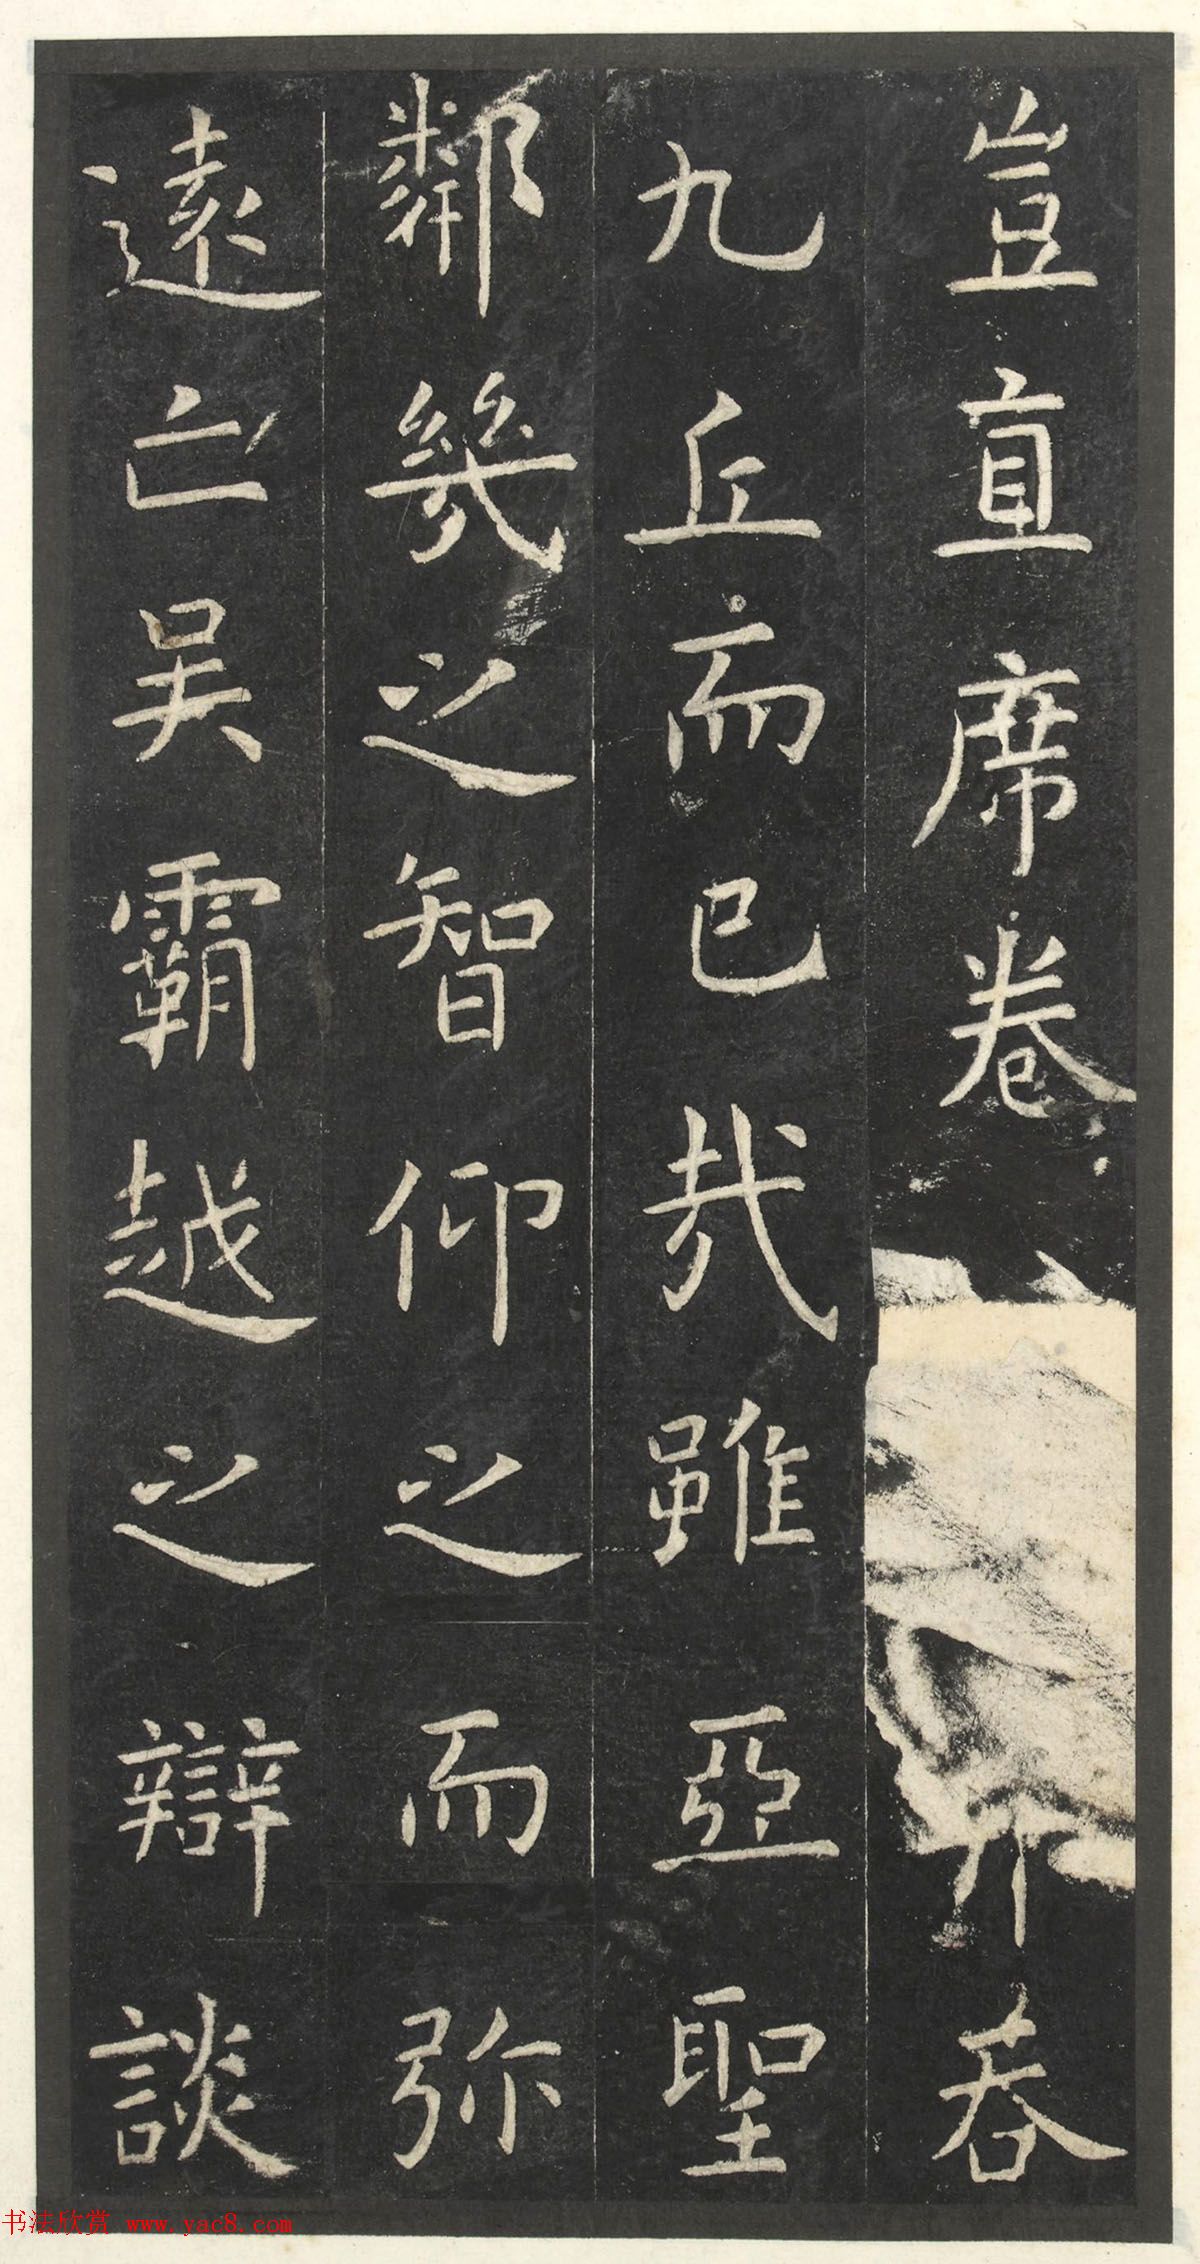 豈直席卷吞
九丘而已哉雖亞聖
鄰幾之智仰之而弥
遠亡吳霸越之辯談
书法欣赏 www.yac8.com